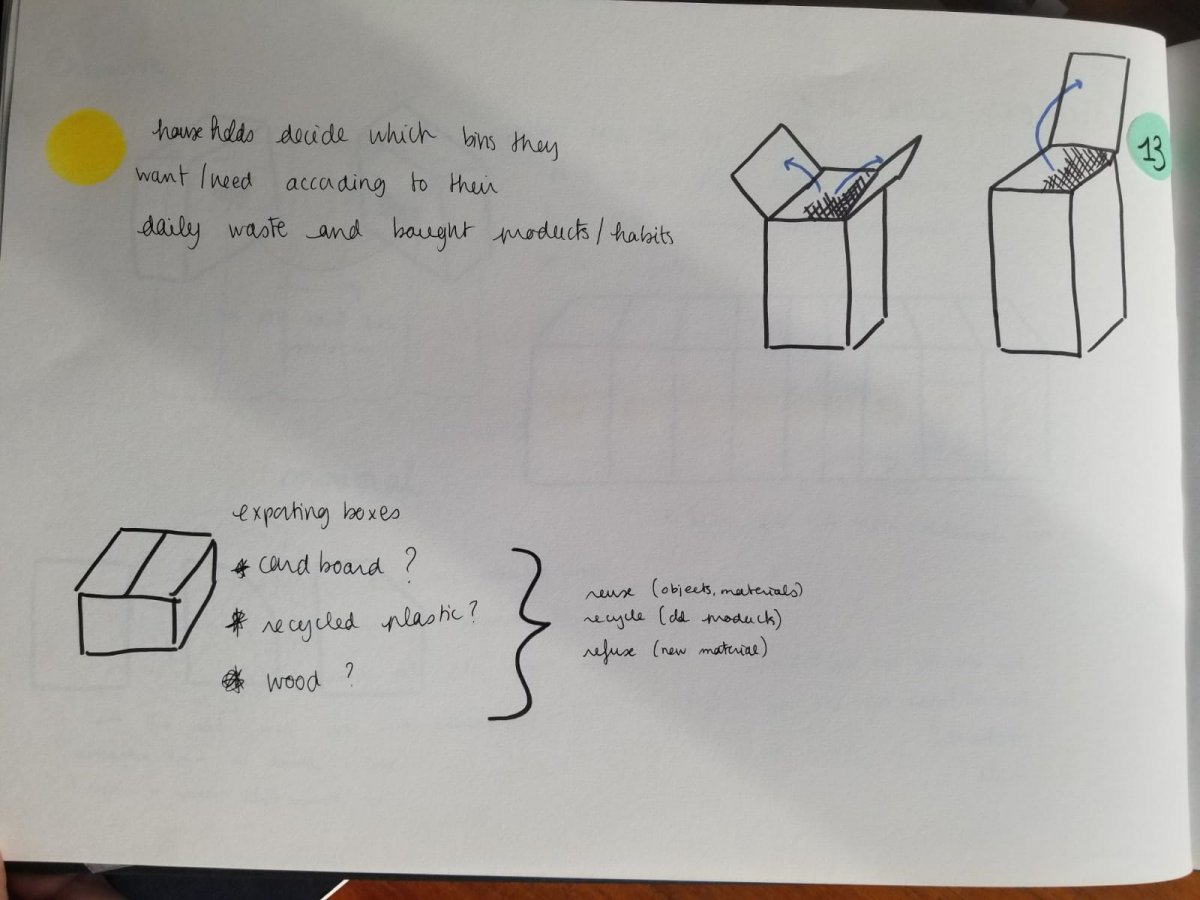 households decide which bins they
want/need according to their
daily waste and bought products/habits
13
exporting boxes
* cardboard ?
* recycled plastic?
* wood ?
reuse (objects, materials)
recycle (old products)
refuse (new material)